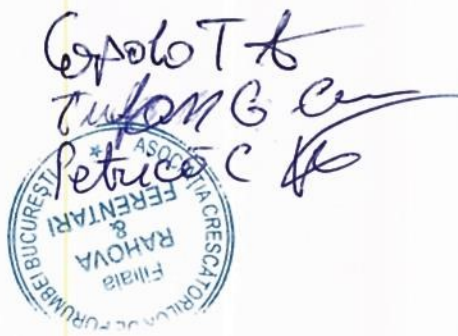 Tufan G
Petrică C
ASOCIAȚIA CRESCATORILOR DE PORUMBEI BUCUREȘTI
Filiala
RAHOVA
&
FERENTARI